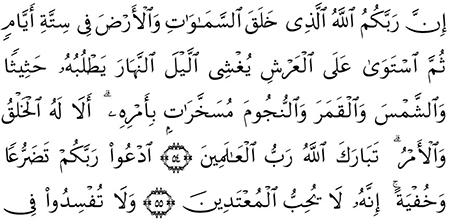 إِنَّ رَبَّكُمُ ٱللَّهُ ٱلَّذِى خَلَقَ ٱلسَّمَـٰوَٰتِ وَٱلْأَرْضَ فِى سِتَّةِ أَيَّامٍ
ثُمَّ ٱسْتَوَىٰ عَلَى ٱلْعَرْشِ يُغْشِى ٱلَّيْلَ ٱلنَّهَارَ يَطْلُبُهُۥ حَثِيثًا
وَٱلشَّمْسَ وَٱلْقَمَرَ وَٱلنُّجُومَ مُسَخَّرَٰتٍۭ بِأَمْرِهِۦٓ ۗ أَلَا لَهُ ٱلْخَلْقُ
وَٱلْأَمْرُ ۗ تَبَارَكَ ٱللَّهُ رَبُّ ٱلْعَـٰلَمِينَ ﴿٥٤﴾ ٱدْعُوا۟ رَبَّكُمْ تَضَرُّعًا
وَخُفْيَةً ۚ إِنَّهُۥ لَا يُحِبُّ ٱلْمُعْتَدِينَ ﴿٥٥﴾ وَلَا تُفْسِدُوا۟ فِى